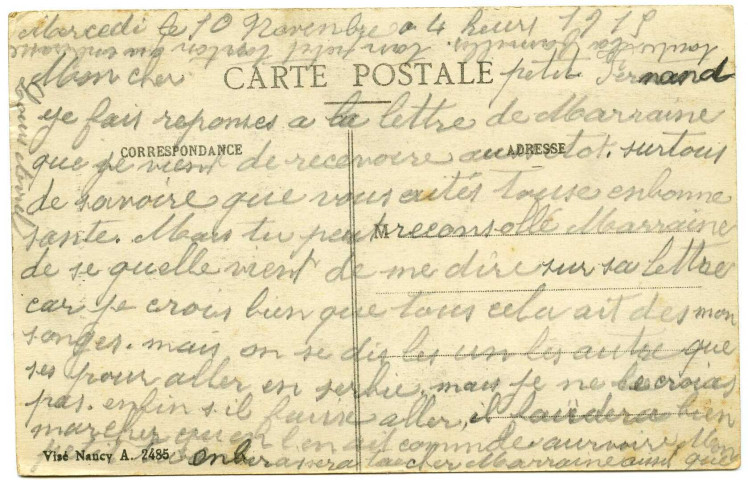 Marcedi le 10 Novenbre a 4 heurs 1915
Mon cher petit Fernand
CARTE POSTALE
je fais reponses a la lettre de Marraine
CORRESPONDANCE
ADRESSE
que je vient de recevoire aussetot. surtous
de savoire que vous aités touse enbonne
sante. Mais tu peut reconsollé Marraine
M
de se quelle vient de me dire sur sa lettre
car je crois bien que tous cela ait des mon
songes. mais on se dis les un les autre que
ses pour aller en serbie, mais je ne le crois
pas. enfin s.il fausse aller, il faudera bien
marcher l'on ait comnde aurvoire Mon
Visé Nancy A. 2485
onb Marraine aussi que